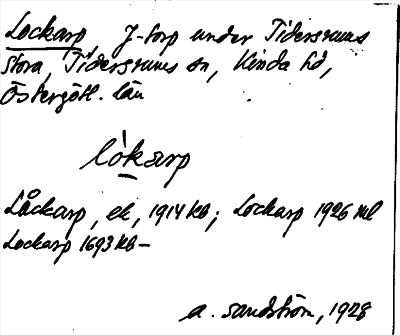 Lockarp, J-torp under Tidersrums
stora, Tidersrums sn, Kinda hd,
Östergötl. län
lòkarp
Låckarp, ek, 1914 kb; Lockarp 1926 ml
Lockarp 1693 kb-
A. Sandström, 1928